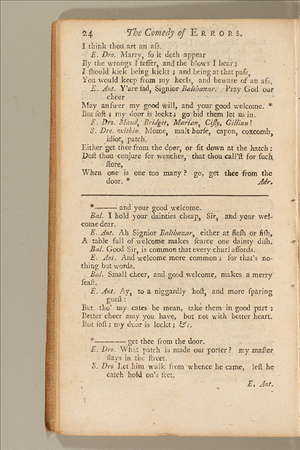 24 The Comedy of ERRORS.
I think thou art an aſs.
E. Dro. Marry, ſo it doth appear
By the wrongs I ſuffer, and the blows I bear;
I ſhould kick being kickt; and being at that paſs,
You would keep from my heels, and beware of an aſs.
E. Ant. Y'are ſad, Signior Balthazar. Pray God our
cheer
May anſwer my good will, and your good welcome. *
But ſoft; my door is lockt; go bid them let us in.
E. Dro. Maud, Bridget, Marian, Ciſly, Gillian!
S. Dro. within. Mome, malt-horſe, capon, coxcomb,
idiot, patch,
Either get thee from the door, or ſit down at the hatch:
Doſt thou conjure for wenches, that thou call'ſt for ſuch
ſtore,
When one is one too many? go, get thee from the
door. * Adr.
*——— and your good welcome.
Bal. I hold your dainties cheap, Sir, and your wel-
come dear.
E. Ant. Ah Signior Balthazar, either at fleſh or fiſh,
A table full of welcome makes ſcarce one dainty diſh.
Bal. Good Sir, is common that every churl affords.
E. Ant. And welcome more common; for that's no-
thing but words.
Bal. Small cheer, and good welcome, makes a merry
feaſt.
E. Ant. Ay, to a niggardly hoſt, and more ſparing
gueſt:
But tho' my cates be mean, take them in good part;
Better cheer may you have, but not with better heart.
But ſoft; my door is lockt; &c.
*——— get thee from the door.
E. Dro. What patch is made our porter? my maſter
ſtays in the ſtreet.
S. Dro Let him walk from whence he came, leſt he
catch hold on's feet.
E. Ant.